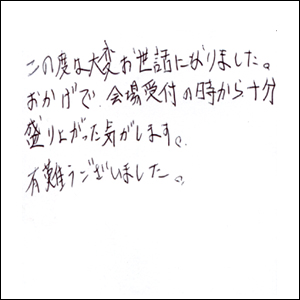 この度は大変お世話になりました。
おかげで、会場受付の時から十分
盛り上がった気がします。
有難うございました。